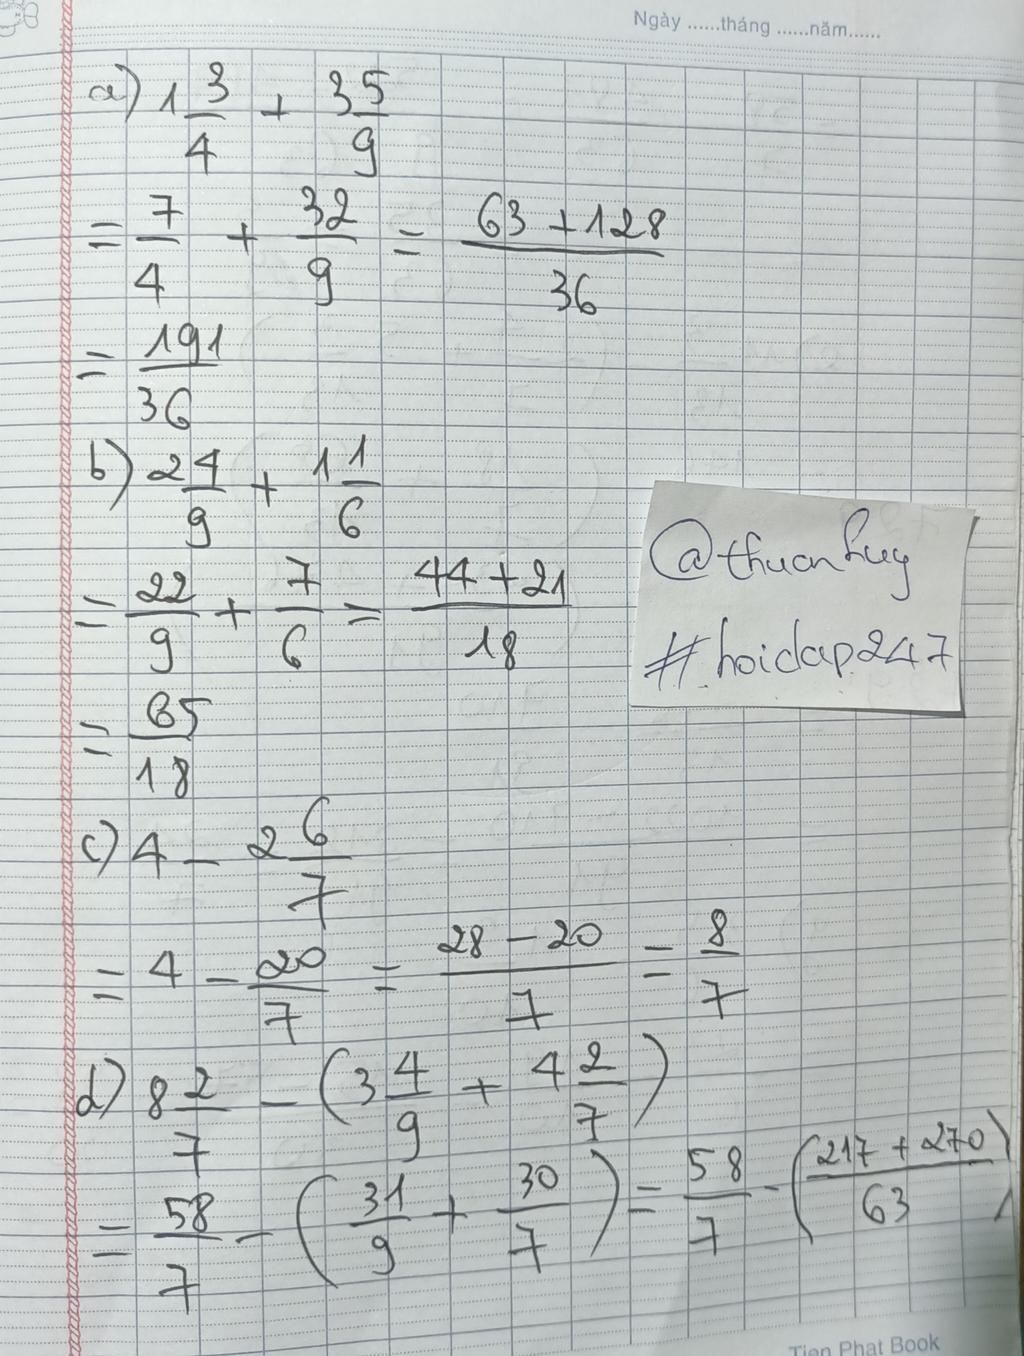 Ngày ......tháng ......năm......
a) 1 3/4 + 3 5/9
= 7/4 + 32/9 = (63 + 128)/36
= 191/36
b) 2 4/9 + 1 1/6
= 22/9 + 7/6 = (44 + 21)/18
= 65/18
@thuanhuy
#hoidap247
c) 4 - 2 6/7
= 4 - 20/7 = (28 - 20)/7 = 8/7
d) 8 2/7 - (3 4/9 + 4 2/7)
= 58/7 - (31/9 + 30/7) = 58/7 - ((217 + 270)/63)
Tien Phat Book